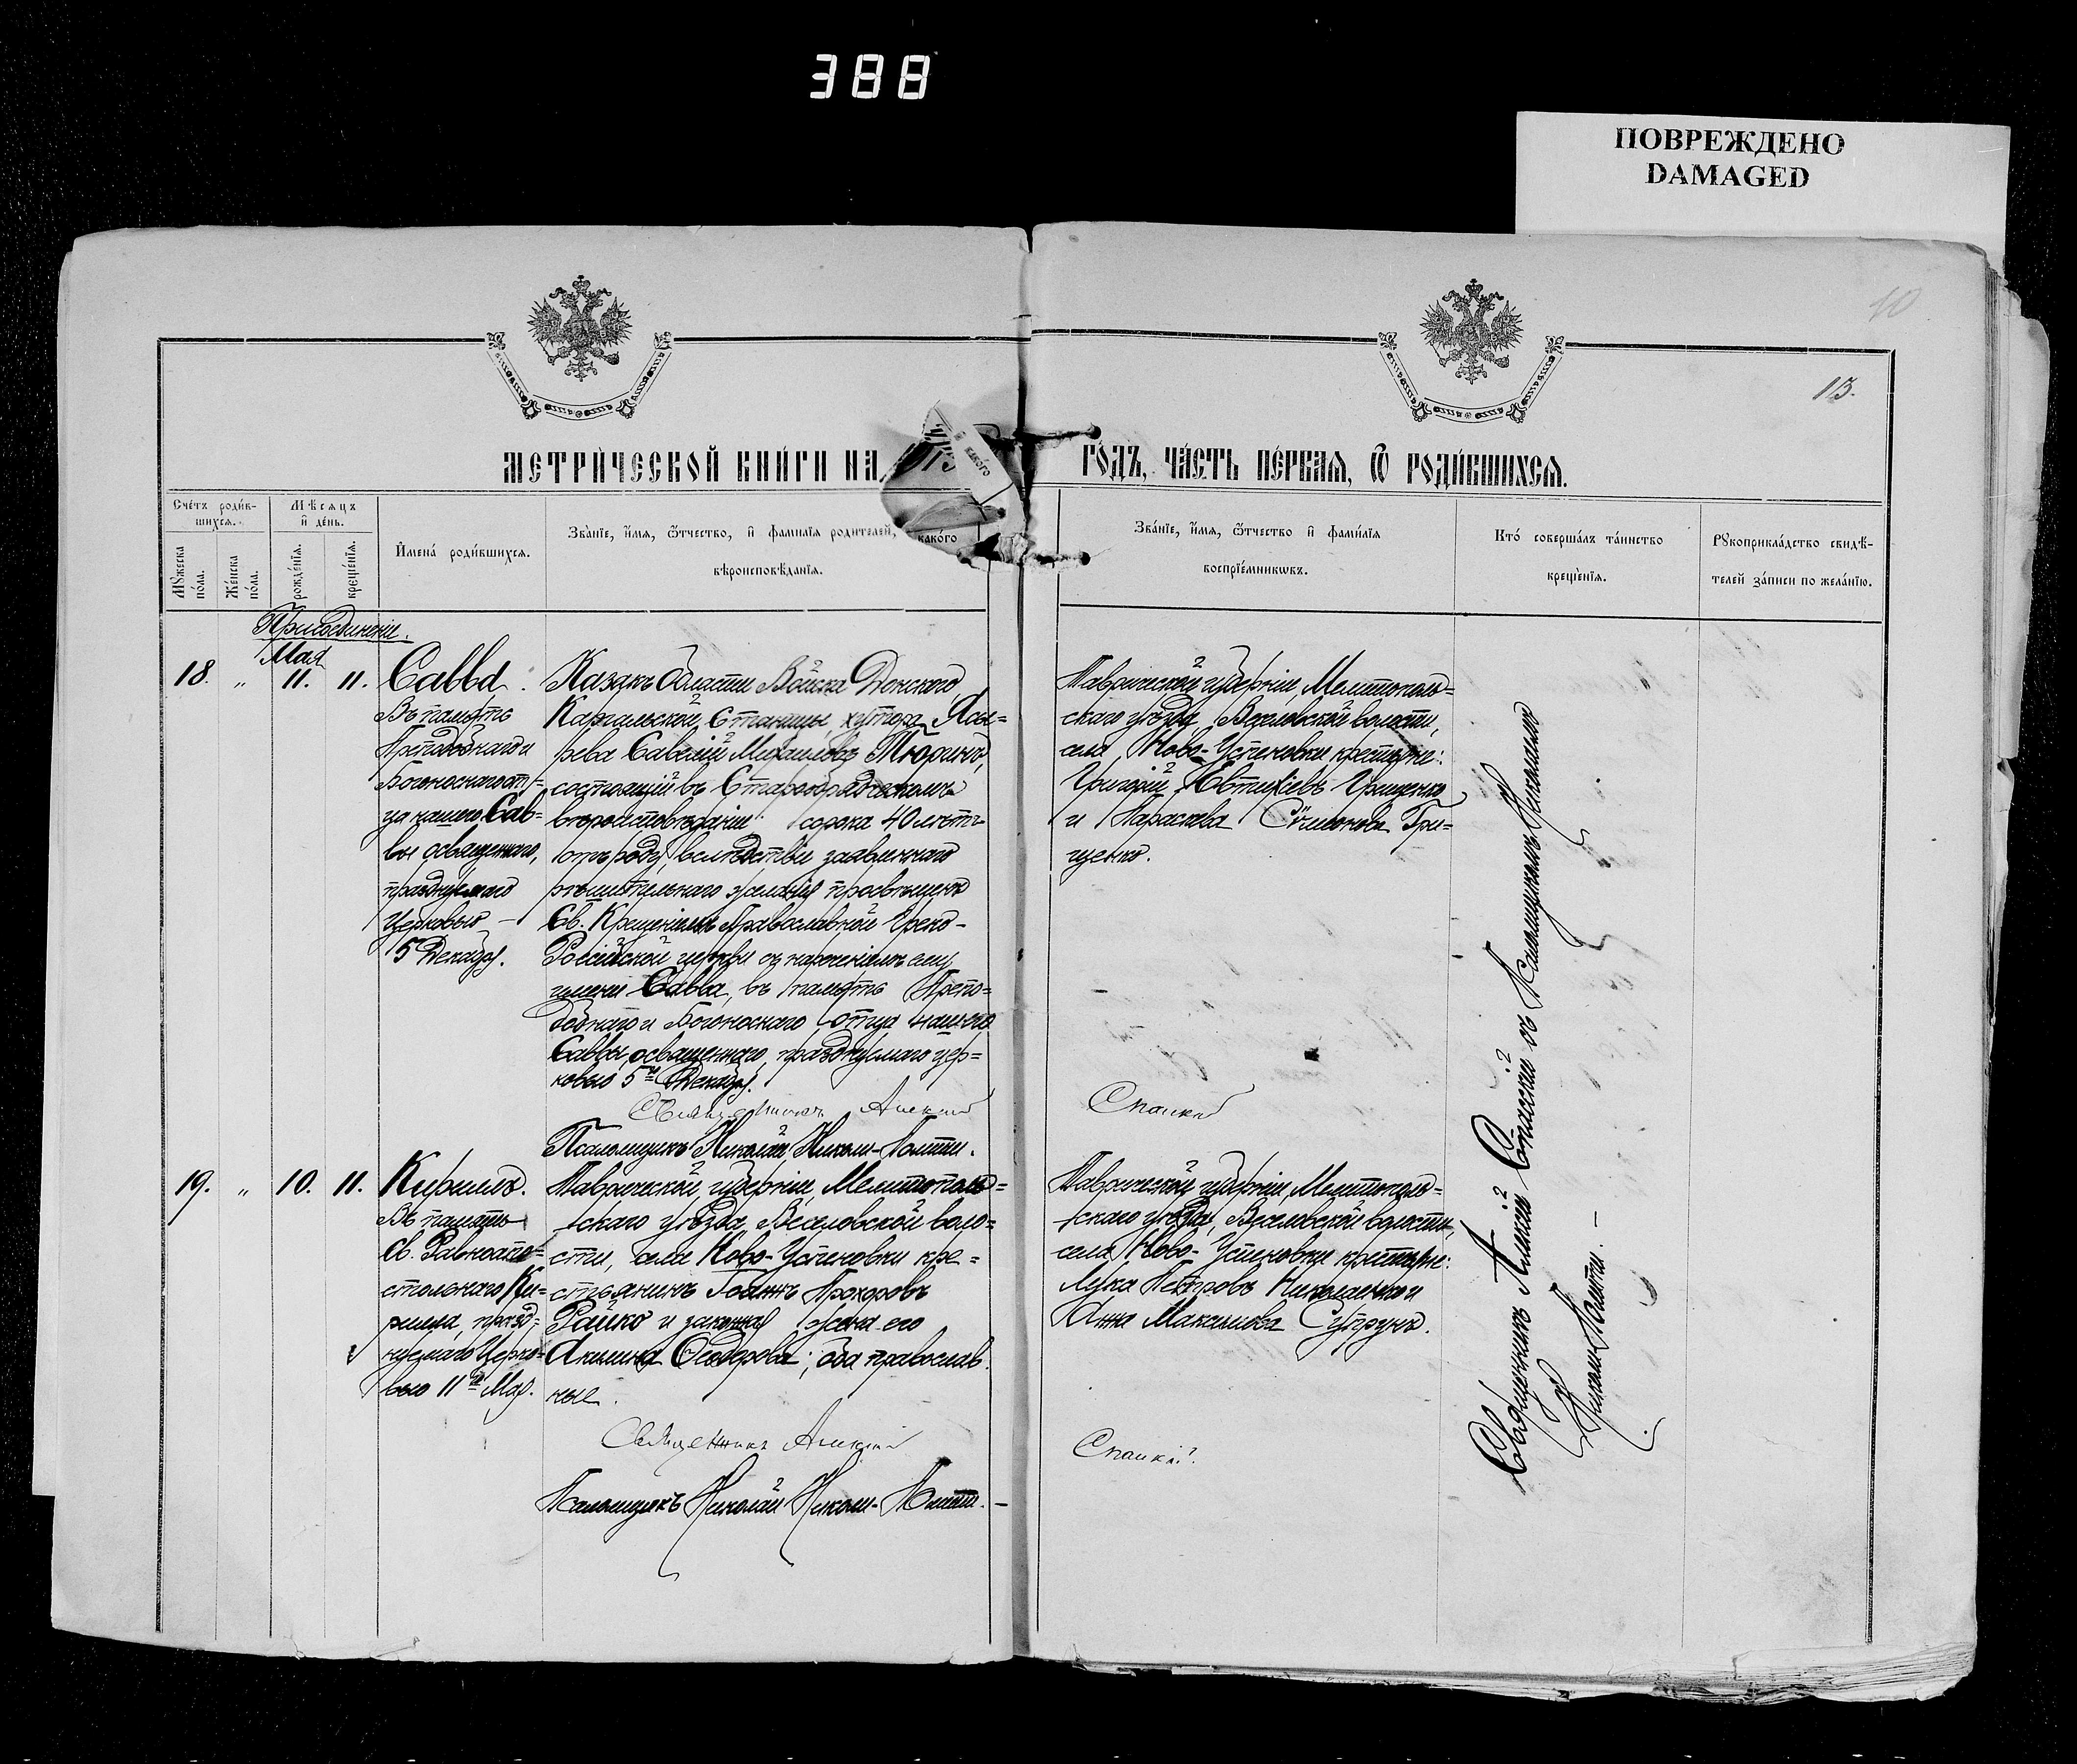 388
ПОВРЕЖДЕНО
DAMAGED
10
13.
МЕТРИ́ЧЕСКОЙ КНИ́ГИ НА
ГО́ДЪ, ЧА́СТЬ ПЕ́РВАЯ, Ѿ РОДИ́ВШИХСЯ.
Сче́тъ роди́в-
шихся.
Мѣсяцъ
и҆ де́нь.
Мꙋ́жеска
по́ла.
Же́нска
по́ла.
рожде́нїя.
креще́нїя.
И҆мена̀ роди́вшихся.
Зва́нїе, и҆́мя, ѻ҆́тчество, и҆ фами́лїя роди́телей,
како́го
вѣроисповѣ́данїя.
Зва́нїе, и҆́мя, ѻ҆́тчество и҆ фами́лїя
воспрїе́мникѡвъ.
Кто̀ соверша́лъ та́инство
креще́нїя.
Рꙋкоприкла́дство свидѣ́-
телей за́писи по жела́нїю.
Присоединеніе.
Мая
18. " 11. 11. Савва.
Въ память
Преподобнаго и
Богоноснаго от-
ца нашего Сав-
вы освященнаго,
празднуемаго
Церковью —
5 Декабря.
Казакъ Области Войска Донского,
Каргальской Станицы, хутора Ясы-
рева Савелій Михаиловъ Тюринъ,
состоящій въ Старообрядческомъ
вѣроисповѣданіи сорока 40 лѣтъ
отъ роду, вслѣдствіе заявленнаго
рѣшительнаго желанія просвѣщенъ
Св. Крещеніемъ Православной Греко-
Россійской церкви съ нареченіемъ ему
имени Савва, въ память Препо-
добнаго и Богоноснаго отца нашего
Саввы освященнаго, празднуемаго цер-
ковью 5го Декабря.
Священникъ Алексій
Спаскій
Псаломщикъ Николай Николи-
Таврической губерніи, Мелитополь-
скаго уѣзда, Веселовской волости,
села Ново-Успеновки крестьяне:
Григорій Евтихіевъ Грищенко
и Параскева Симонова Гри-
щенко.
19. " 10. 11. Кириллъ.
Въ память
Св. Равноапо-
стольнаго Ки-
рилла, празд-
нуемаго Церко-
вью 11го Мая.
Таврической губерніи, Мелитополь-
скаго уѣзда, Веселовской воло-
сти, села Ново-Успеновки кре-
стьянинъ Іоаннъ Прохоровъ
Райко и законная жена его
Акилина Ѳеодорова; оба православ-
ные.
Священникъ Алексій
Спаскій.
Псаломщикъ Николай Николи-
Таврической губерніи, Мелитополь-
скаго уѣзда, Веселовской волости,
села Ново-Успеновки крестьяне:
Лука Петровъ Николаенко и
Анна Максимова Супрунъ.
Священникъ Алексій Спасскій съ Псаломщикомъ Николаемъ